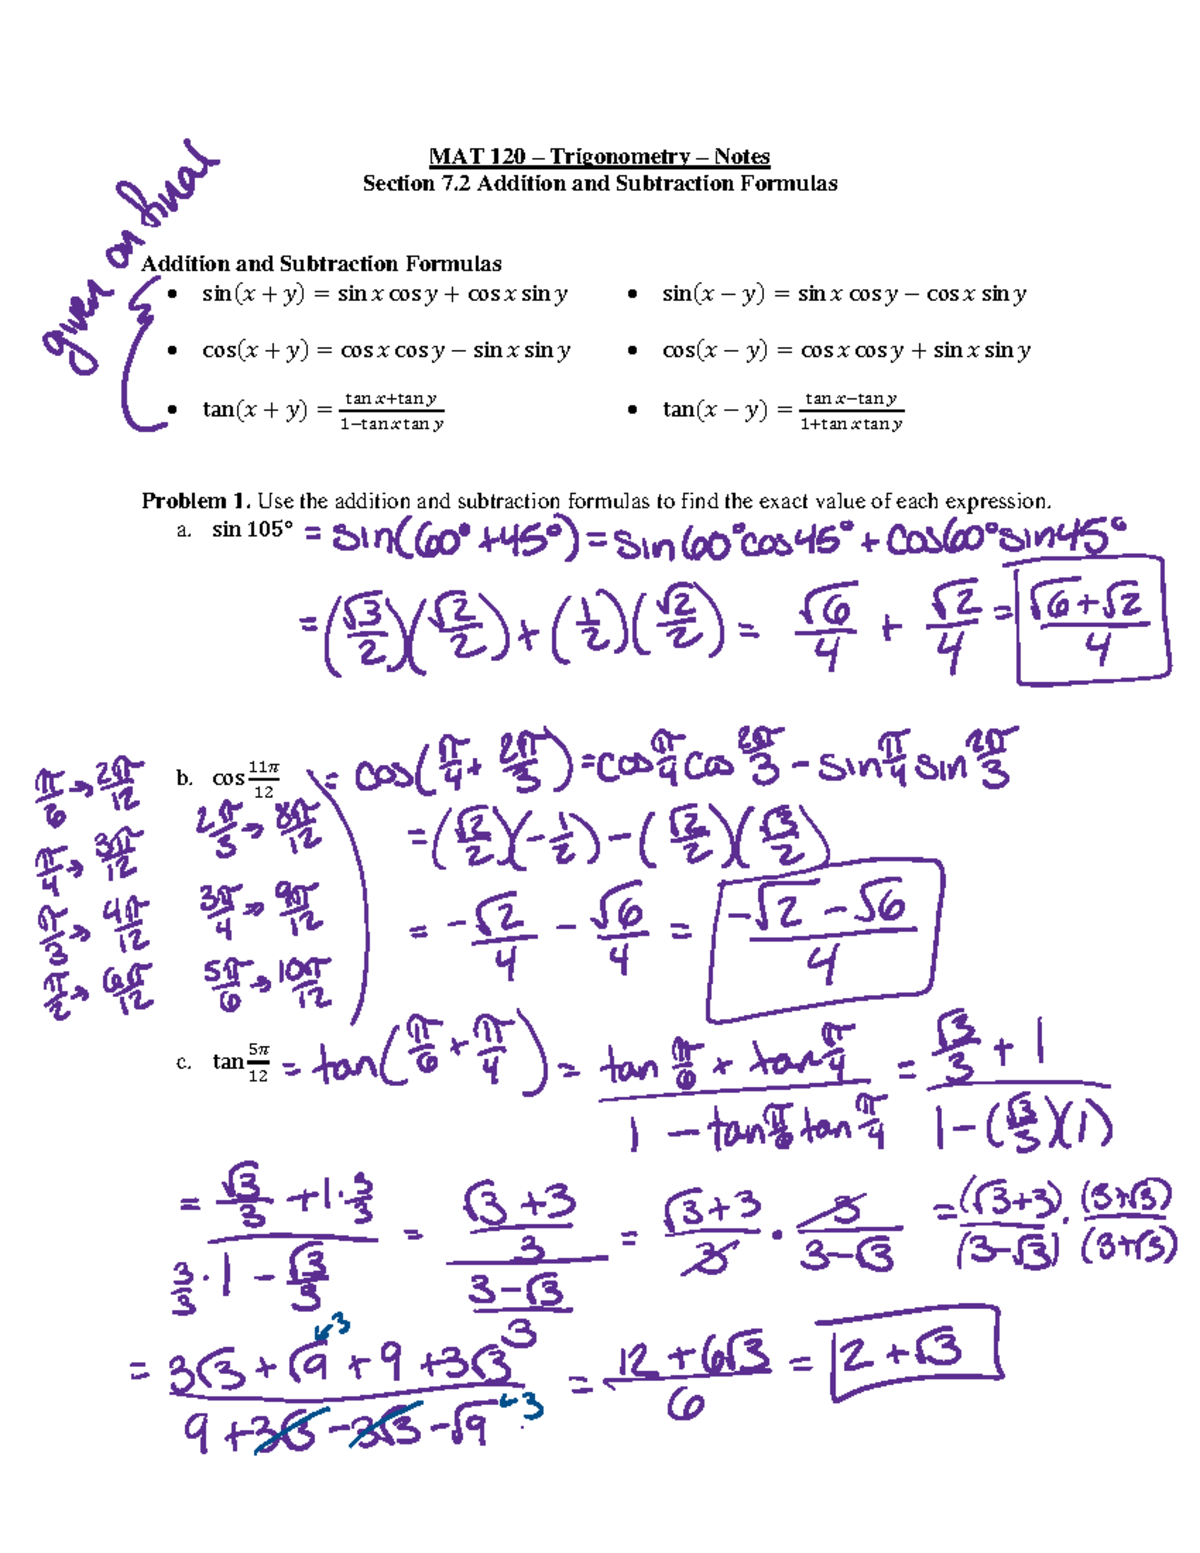 given on final
MAT 120 – Trigonometry – Notes
Section 7.2 Addition and Subtraction Formulas
Addition and Subtraction Formulas
• sin(x + y) = sin x cos y + cos x sin y • sin(x − y) = sin x cos y − cos x sin y
• cos(x + y) = cos x cos y − sin x sin y • cos(x − y) = cos x cos y + sin x sin y
• tan(x + y) = (tan x+tan y)/(1−tan x tan y) • tan(x − y) = (tan x−tan y)/(1+tan x tan y)
Problem 1. Use the addition and subtraction formulas to find the exact value of each expression.
a. sin 105° = sin(60° + 45°) = sin 60° cos 45° + cos 60° sin 45°
= (√3/2)(√2/2) + (1/2)(√2/2) = √6/4 + √2/4 = (√6+√2)/4
b. cos 11π/12 = cos(π/4 + 2π/3) = cos π/4 cos 2π/3 − sin π/4 sin 2π/3
π/6 → 2π/12
π/4 → 3π/12
π/3 → 4π/12
π/2 → 6π/12
2π/3 → 8π/12
3π/4 → 9π/12
5π/6 → 10π/12
= (√2/2)(−1/2) − (√2/2)(√3/2)
= −√2/4 − √6/4 = (−√2 − √6)/4
c. tan 5π/12 = tan(π/6 + π/4) = (tan π/6 + tan π/4)/(1 − tan π/6 tan π/4) = (√3/3 + 1)/(1 − (√3/3)(1))
= (√3/3 + 1 · 3/3)/(3/3 · 1 − √3/3) = ((√3+3)/3)/((3−√3)/3) = (√3+3)/3 · 3/(3−√3) = (√3+3)/(3−√3) · (3+√3)/(3+√3)
= (3√3 + √9 + 9 + 3√3)/(9 + 3√3 − 3√3 − √9) = (12 + 6√3)/6 = 2 + √3
← 3
← 3